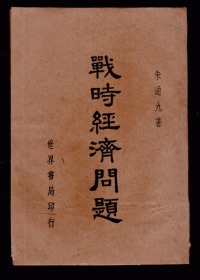 朱通九著
戰時經濟問題
世界書局印行